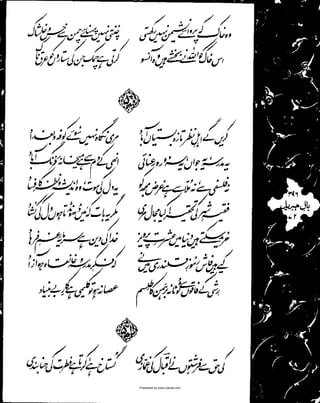 وہ خاک کہ پروائے نشیمن نہیں رکھتی چنتی نہیں پہنائے چمن سے خس و خاشاک
اس خاک کو اللہ نے بخشے ہیں وہ آنسو کرتی ہے چمک جن کی ستاروں کو عرق ناک
کریں گے اہلِ نظر تازہ بستیاں آباد مری نگاہ نہیں سوئے کوفہ و بغداد
یہ مدرسہ، یہ جواں، یہ سرور و رعنائی انھی کے دم سے ہے میخانۂ فرنگ آباد
نہ فلسفی سے، نہ ملا سے ہے غرض مجھ کو یہ دل کی موت، وہ اندیشہ و نظر کا فساد
فقیہِ شہر کی تحقیر! کیا مجال مری مگر یہ بات کہ میں ڈھونڈتا ہوں دل کی کشاد
خرید سکتے ہیں دنیا میں عشرتِ پرویز خدا کی دین ہے سرمایۂ غمِ فرہاد
کیے ہیں فاش رموزِ قلندری میں نے کہ فکرِ مدرسہ و خانقاہ ہو آزاد
رشی کے فاقوں سے ٹوٹا نہ برہمن کا طلسم عصا نہ ہو تو کلیمی ہے کارِ بے بنیاد
کی حق سے فرشتوں نے اقبال کی غمازی گستاخ ہے، کرتا ہے فطرت کی حنا بندی
بالِ جبریل
Presented by www.iqbalcyberlibrary.net